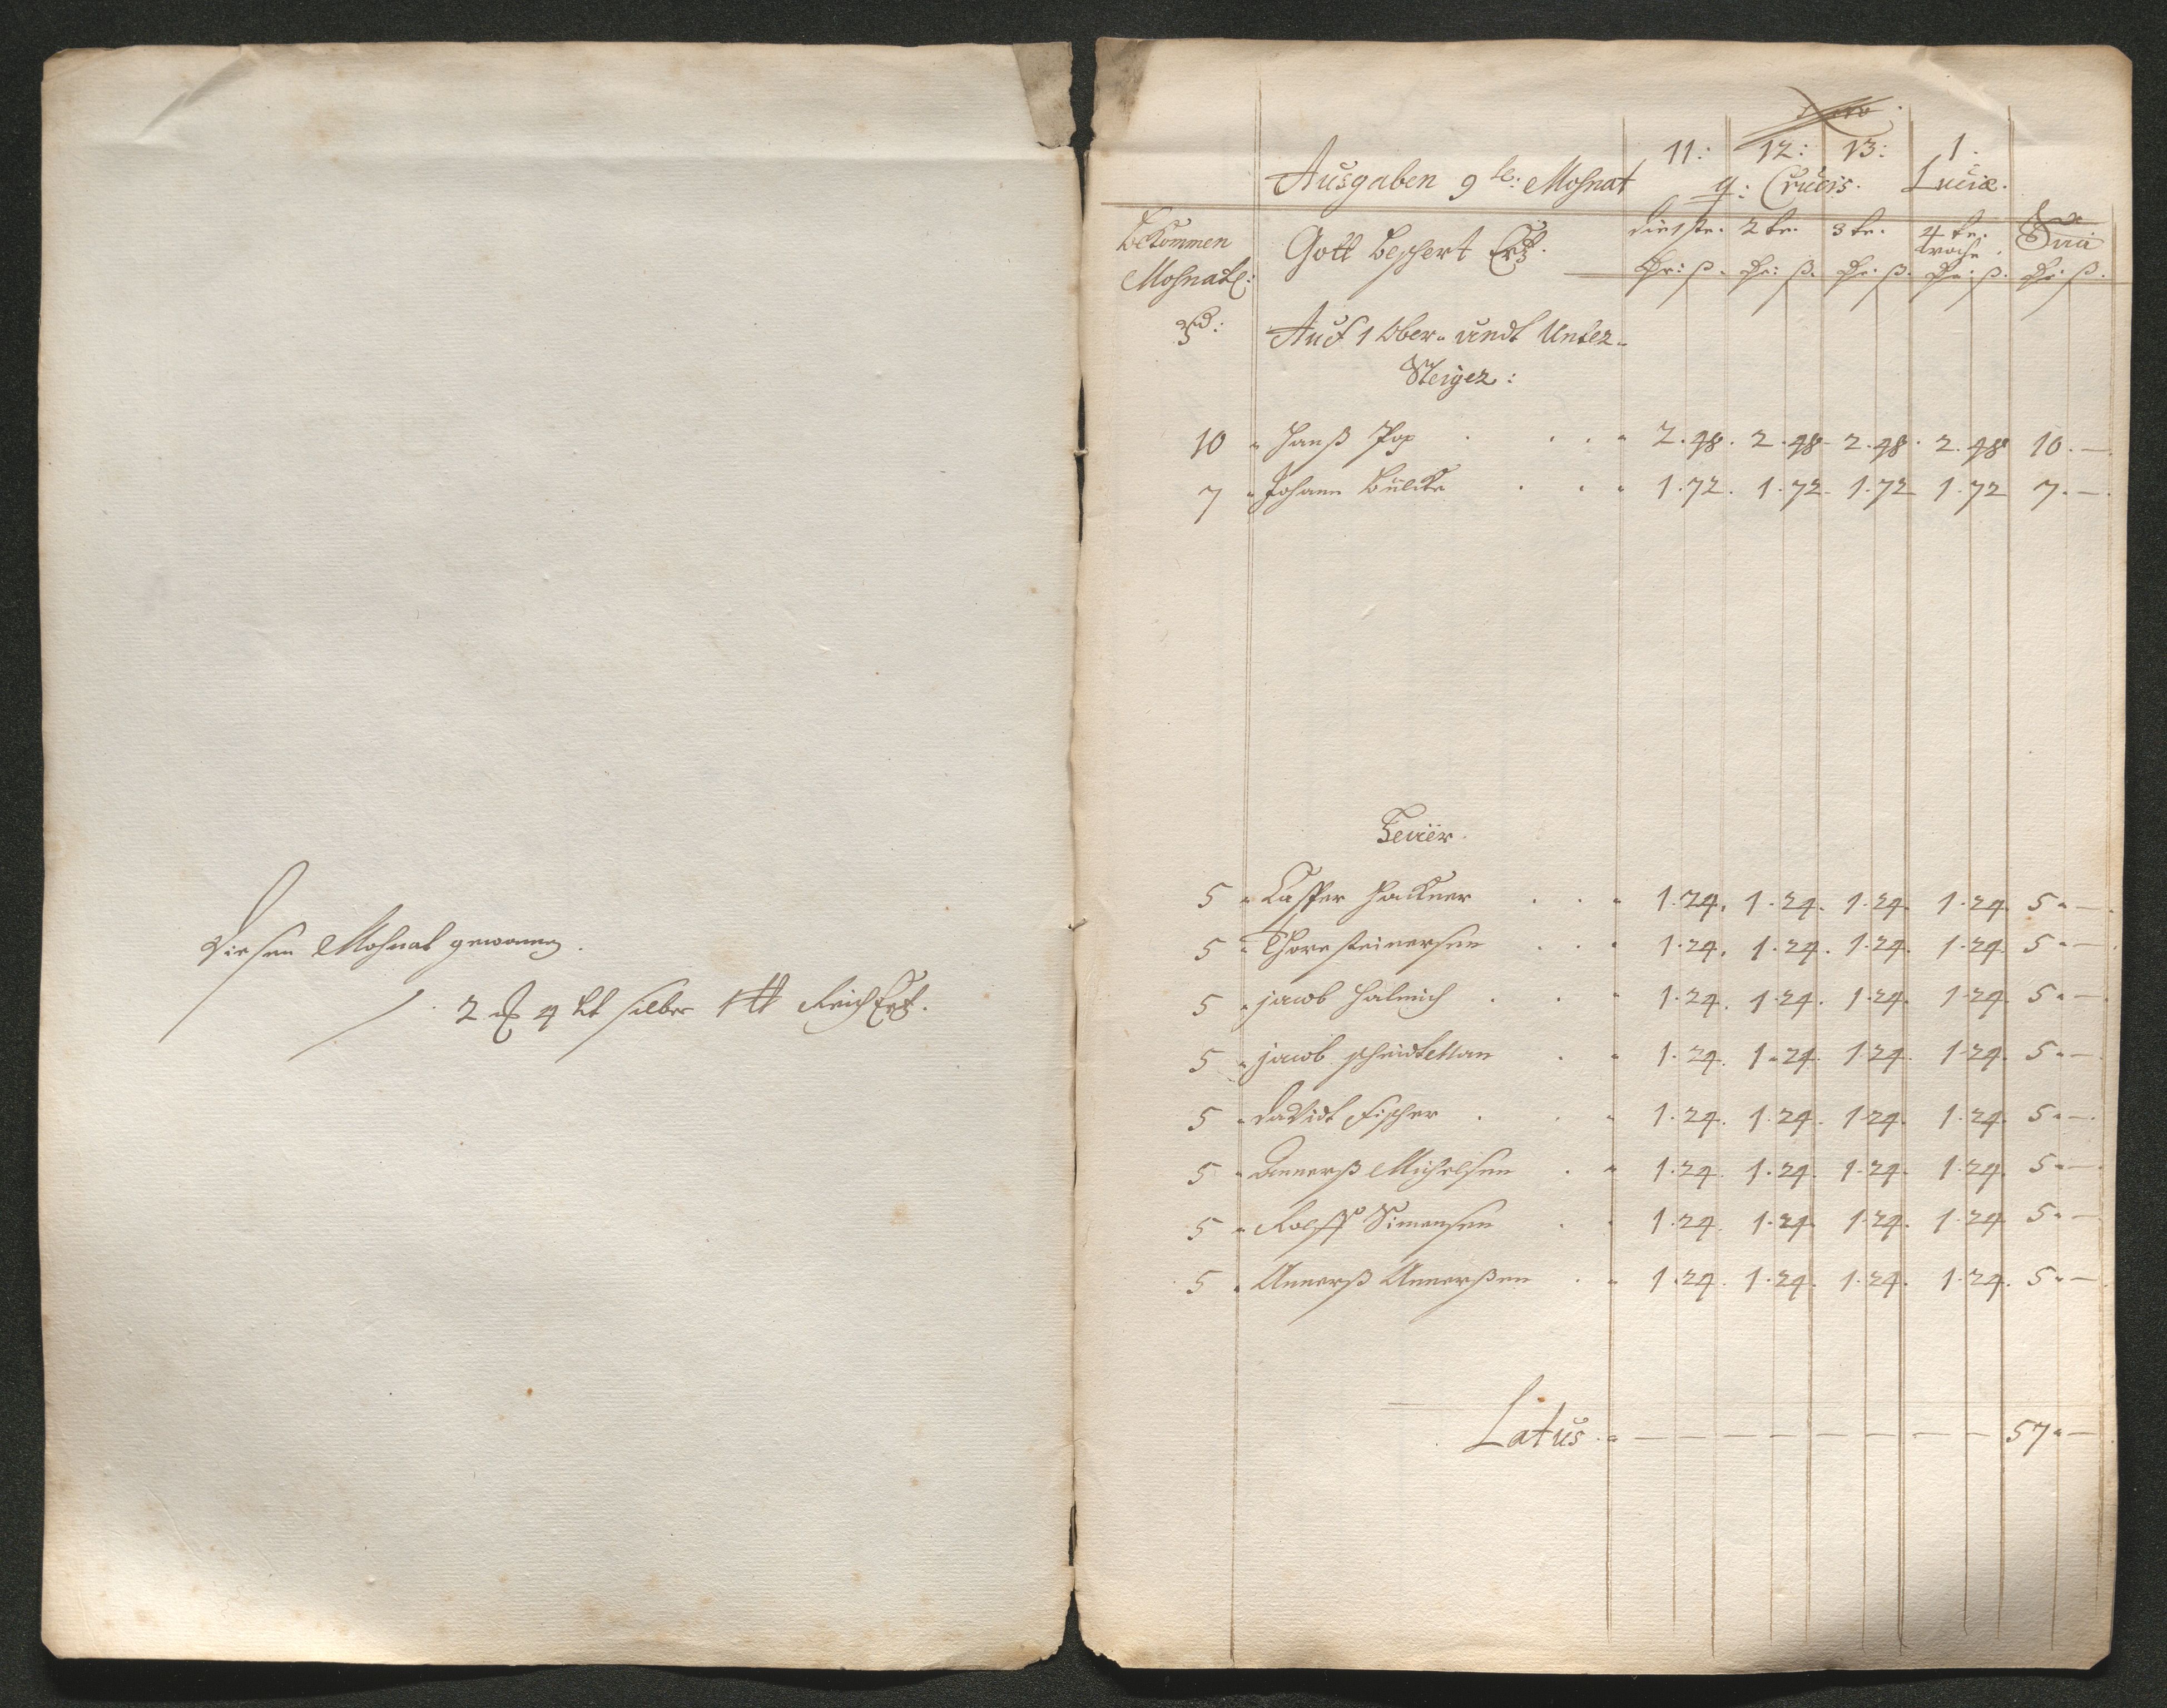 Diesen Mohnat gewonnen.
2 ℔ 4 Lt silber Reich Ertz.
11: 12: 13: 1.
Ausgaben 9te: Mohnat q: Crucis. Luciæ.
Bekommen Gott beschert Ertz. 2te. 3te. 4te. Suã
Mohnatl: woche
Auf 1 Ober- undt Unter-
Steiger:
10 Hanß Pop 2.48. 2.48. 2.48. 2.48 10.—
7 Johann 1.72. 1.72. 1.72 1.72 7.—
5 Casper Hackner 1.24. 1.24. 1.24. 1.24. 5.—
5 Thore steinersen 1.24. 1.24. 1.24. 1.24. 5.—
5 jacob Halmich 1.24. 1.24. 1.24. 1.24. 5.—
5 jacob 1.24. 1.24. 1.24. 1.24. 5.—
5 Davidt Fischer 1.24. 1.24. 1.24. 1.24. 5.—
5 Annerß Michelsen 1.24. 1.24. 1.24. 1.24. 5.—
5 Rolff Simensen 1.24. 1.24. 1.24. 1.24. 5.—
5 Annerß Annerßen 1.24. 1.24. 1.24. 1.24. 5.—
Latus — — — — — — — — 57.—